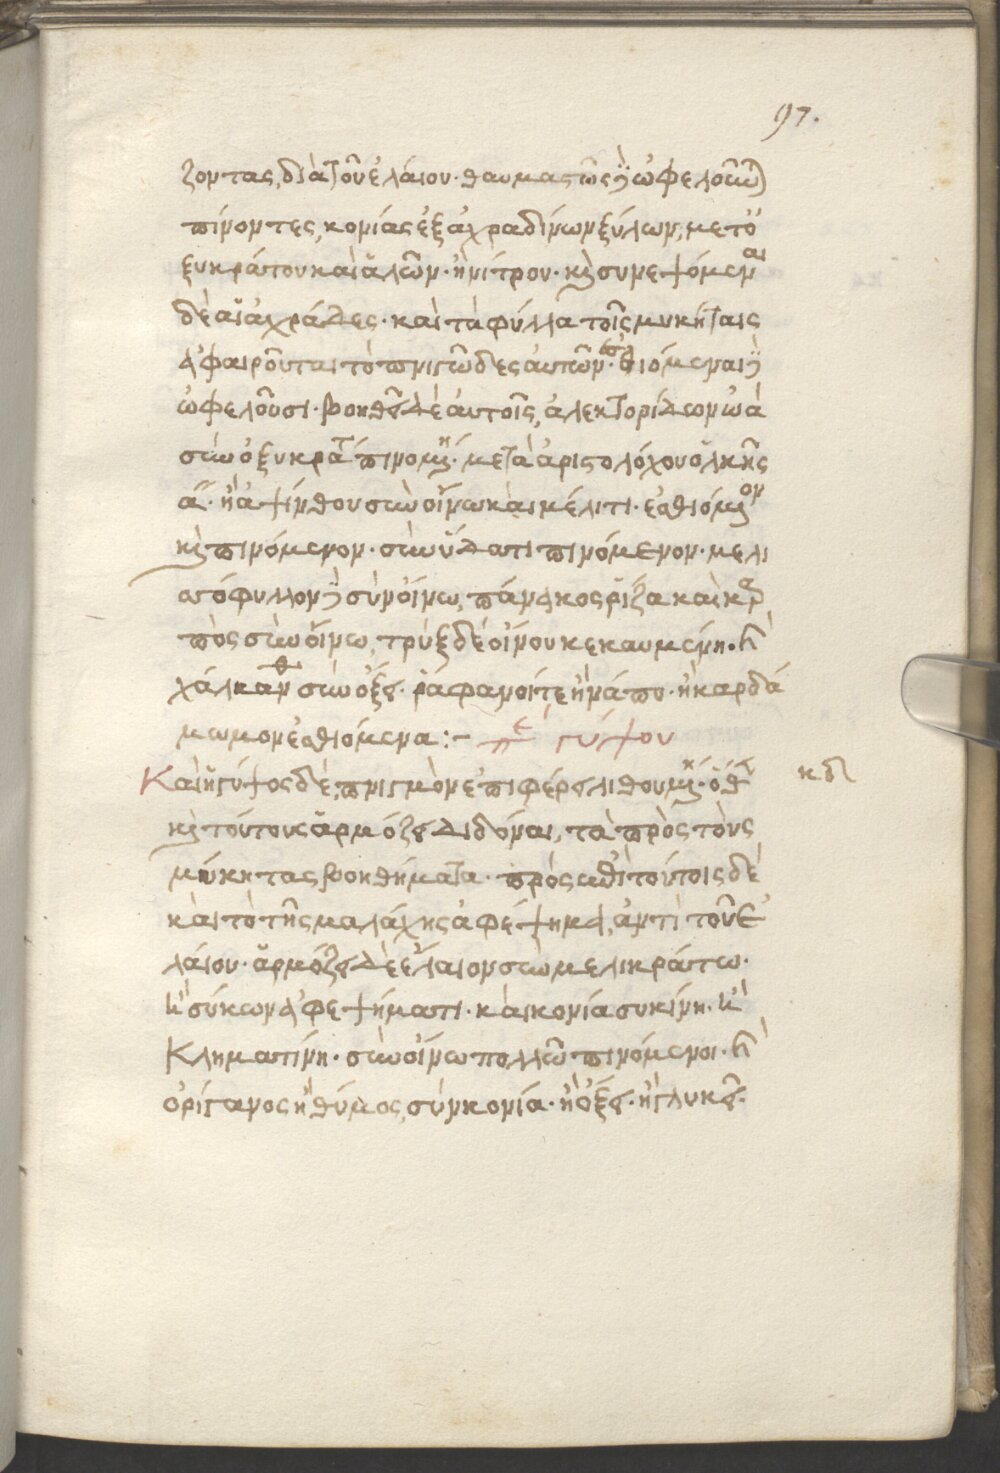 97.
ζοντας, διὰ τοῦ ἐλαίου· θαυμαστῶς δὲ ὠφελοῦν)
πίνοντες, κονίας ἐξ ἀχραδίνων ξύλων, μετ' ὀ
ξυκράτου καὶ ἁλῶν· ἢ νίτρου· κ συνεψόμεναι
δὲ αἱ ἀχράδες· καὶ τὰ φύλλα τοῖς μυκήταις
ἀφαιροῦνται τὸ πνιγῶδες αὐτῶν· ἐσθιόμεναι
ὠφελοῦσι· βοηθεῖ δὲ αὐτοῖς, ἀλεκτορίδων ὠὰ
σὺν ὀξυκρατ πινομ· μετὰ ἀριστολόχου ὁλκῆς
ά· ἢ ἀψίνθου σὺν οἴνω καὶ μέλιτι· ἐσθιόμον
κ πινόμενον· σὺν ὕδατι πινόμενον· μελι
σσόφυλλον σὺν οἴνω, πάνακος ῥίζα καὶ καρ
πὸς σὺν οἴνω, τρὺξ δὲ οἴνου κεκαυμένη· ἢ
χάλκανθ σὺν ὄξει· ῥάφανοί τε ἢ νάπυ· ἢ καρδά
μωμον ἐσθιόμενα:- πε γύψου
Καὶ ἡ γύψος δὲ, πνιγμὸν ἐπιφέρει λιθουμ· ὅθ κδ
κ τούτους ἁρμόζει διδόναι, τὰ πρὸς τοὺς
μύκητας βοηθήματα· πρὸς ἐπὶ τούτοις δὲ
καὶ τὸ τῆς μαλάχης ἀφέψημα, ἀντὶ τοῦ ἐ
λαίου· ἁρμόζει δὲ ἔλαιον σὺν μελικράτω·
ἢ σύκων ἀφεψήματι· καὶ κονία συκίνη· ἢ
Κληματίνη· σὺν οἴνω πολλῶ πινόμενοι· ἢ
ὀρίγανος ἢ θύμος, σὺν κονία· ἢ ὄξει· ἢ γλυκεῖ·